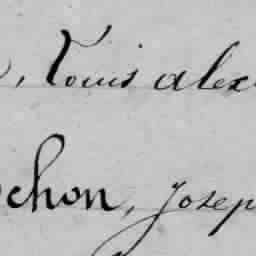 , Louis alex
chon, Josep